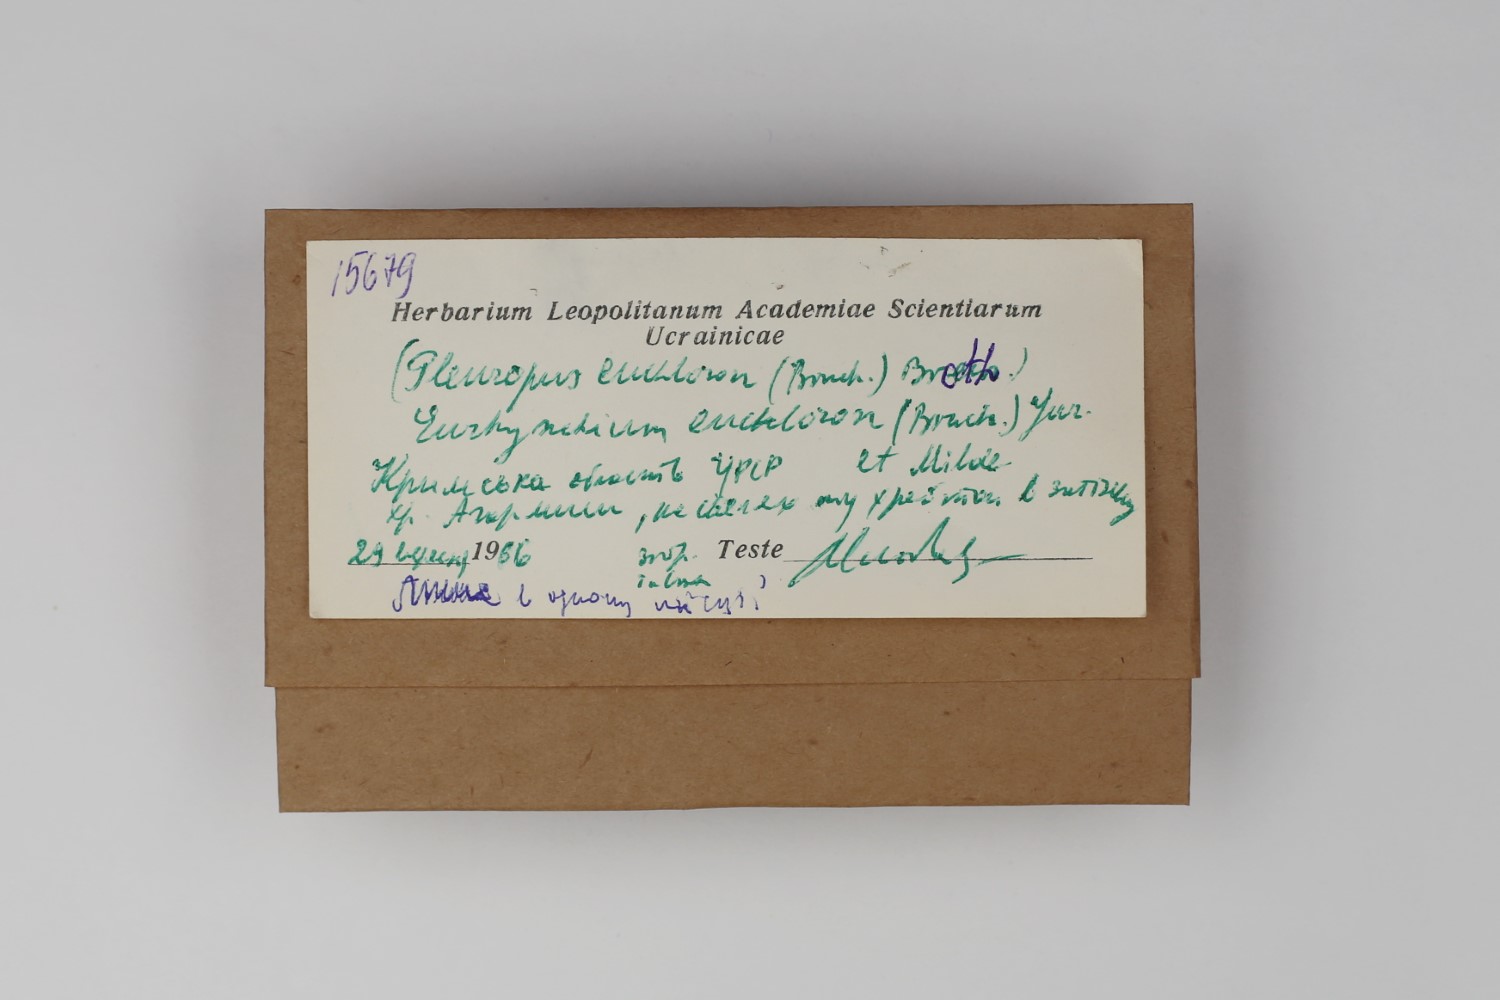 15679
Herbarium Leopolitanum Academiae Scientiarum
Ucrainicae
(Pleuropus euchloron (Bruch.) Broth.)
Eurhynchium euchloron (Bruch.) Jur.
et Milde
Кримська область УРСР
хр. , на скелях хребта в затінку
29 1966
Teste
в одному місці